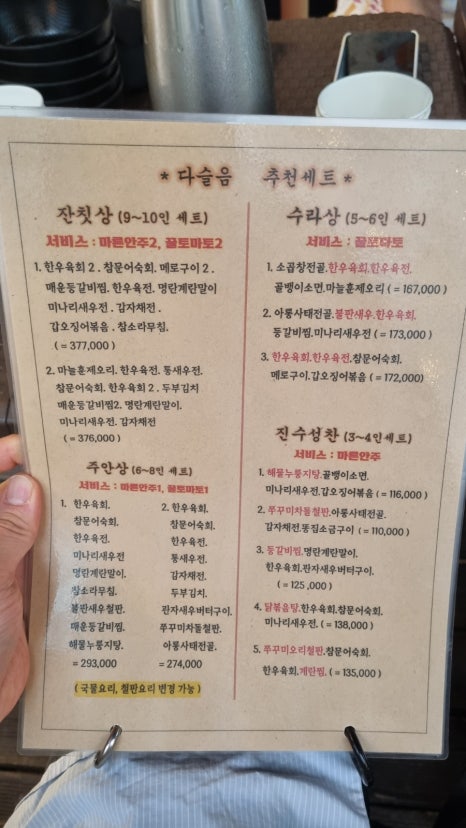 * 다슬음 추천세트 *
잔칫상 (9~10인 세트)
서비스 : 마른안주2, 꿀토마토2
1. 한우육회 2 . 참문어숙회. 메로구이 2 .
매운등갈비찜. 한우육전. 명란계란말이
미나리새우전 . 감자채전 .
갑오징어볶음 . 참소라무침.
( = 377,000 )
2. 마늘훈제오리. 한우육전. 통새우전.
참문어숙회. 한우육회 2 . 두부김치
매운등갈비2. 명란계란말이.
미나리새우전. 감자채전
( = 376,000 )
주안상 (6~8인 세트)
서비스 : 마른안주1, 꿀토마토1
1. 한우육회.
참문어숙회.
한우육전.
미나리새우전
명란계란말이.
참소라무침.
불판새우철판.
매운등갈비찜.
해물누룽지탕.
= 293,000
2. 한우육회.
참문어숙회.
한우육전.
통새우전.
감자채전.
두부김치.
관자새우버터구이.
쭈꾸미차돌철판.
아롱사태전골.
= 274,000
( 국물요리, 철판요리 변경 가능 )
수라상 (5~6인 세트)
서비스 : 꿀포다토
1. 소곱창전골.한우육회.한우육전.
골뱅이소면.마늘훈제오리 ( = 167,000 )
2. 아롱사태전골.불판새우.한우육회.
등갈비찜.미나리새우전 ( = 173,000 )
3. 한우육회.한우육전.참문어숙회.
메로구이.갑오징어볶음 ( = 172,000)
진수성찬 (3~4인세트)
서비스 : 마른안주
1. 해물누룽지탕.골뱅이소면.
미나리새우전.갑오징어볶음 ( = 116,000 )
2. 쭈꾸미차돌철판.아롱사태전골.
감자채전.똥집소금구이 ( = 110,000 )
3. 등갈비찜.명란계란말이.
한우육회.관자새우버터구이.
( = 125 ,000 )
4. 닭볶음탕.한우육회.참문어숙회.
미나리새우전. ( = 138,000 )
5. 쭈꾸미오리철판.참문어숙회.
한우육회.계란찜. ( = 135,000 )